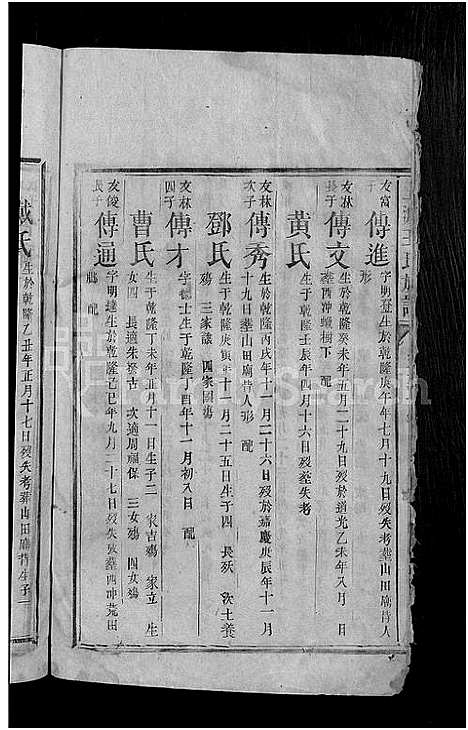 友富 傳進 字明 生於乾隆庚午年七月十九日歿失考葬山田廟背人
長子
形
友林 傳文 生於乾隆癸未年五月二十九日歿於道光乙未年八月 日
長子
葬西冲 樹下 配
黃氏 生於乾隆壬辰年四月十六日歿葬失考
友林 傳秀 生於乾隆丙戌年十一月二十六日歿於嘉慶庚辰年十一月
次子
十九日葬山田廟背人形 配
鄧氏 生於乾隆庚寅年十一月二十五日生子四 長殀 次士養
殤 三家 四家國殤
友林 傳才 字德士生于乾隆丁酉年十一月初八日 配
四子
曹氏 生于乾隆丁未年正月十一日生子二 家吉殤 家立 生
女四 長適朱 古 次適周福保 三女殤 四女殤
友俊 傳通 字明達生於乾隆己巳年九月二十七日歿失攷葬西冲荒田
長子
配
戴氏 生於乾隆乙丑年正月十七日歿失考葬山田廟背生子二